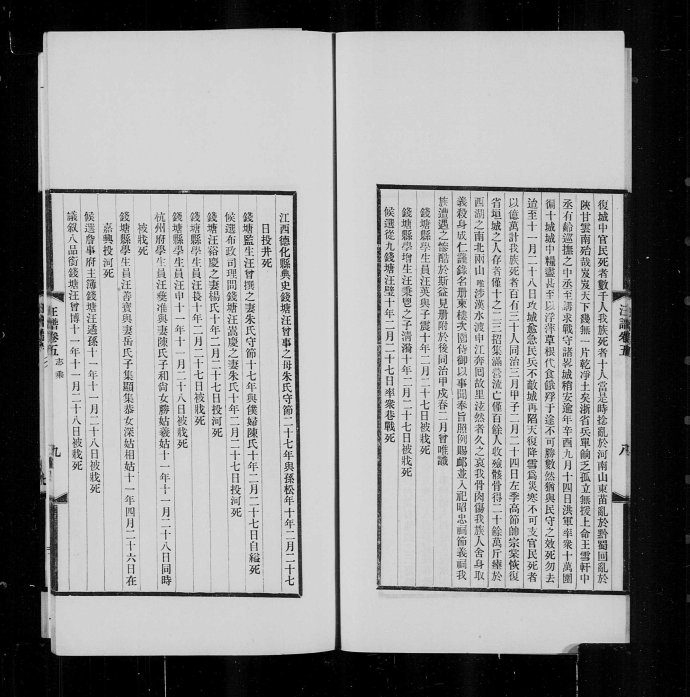 復城中官民死者數千人我族死者十人當是時捻亂於河南山東苗亂於黔蜀回亂於
陝甘雲南殆哉岌岌天下幾無一片乾淨土矣浙省兵單餉乏孤立無援上命王雪軒中
丞有齡巡撫之中丞至講求戰守諸郡城稍安逾年辛酉九月十四日洪軍率衆十萬圍
徧十城城中糧盡甚至以浮萍草根代食餓殍于途不可勝數然猶與民守之效死勿去
迨至十一月二十八日攻城愈急民兵不敵城再陷天復降雪爲災寒不可支官民死者
以億萬計我族死者百有三十人同治三月甲子二月二十四日左季高節帥宗棠恢復
省垣城之人存者僅十之二三招集滿營流亡僅百餘人收殮骸骨得二十餘萬斤瘞於
西湖之南北兩山唯涉漢水波申江奔回故里泫然者久之哀我骨肉傷我族人舍身取
義殺身成仁謹錄名册東樓次園侍御以事聞奉旨照例賜卹並入祀昭忠祠節義祠我
族遭遇之慘酷於斯益見册附於後同治甲戌春二月曾唯識
錢塘縣學生員汪英與子震十年二月二十七日被戕死
錢塘縣學增生汪秉鬯之子清瀚十年二月二十七日被戕死
候選從九錢塘汪璧十年二月二十七日率衆巷戰死
汪譜卷五
八
江西德化縣典史錢塘汪曾事之母朱氏守節二十七年與孫松年十年二月二十七
日投井死
錢塘監生汪曾撰之妻朱氏守節十七年與僕婦陳氏十年二月二十七日自縊死
候選布政司理問錢塘汪嵩慶之妻朱氏十年二月二十七日投河死
錢塘汪裕慶之妻楊氏十年二月二十七日投河死
錢塘縣學生員汪長十年二月二十七日被戕死
錢塘縣學生員汪申十一年十一月二十八日被戕死
杭州府學生員汪奠准與妻陳氏子和尙女勝姑羲姑十一年十一月二十八日同時
被戕死
錢塘縣學生員汪善寶與妻岳氏子集顯集恭女深姑相姑十一年四月二十六日在
嘉興投河死
候選詹事府主簿錢塘汪适孫十一年十一月二十八日被戕死
議敘八品銜錢塘汪曾博十一年十一月二十八日被戕死
汪譜卷五
志乘
九